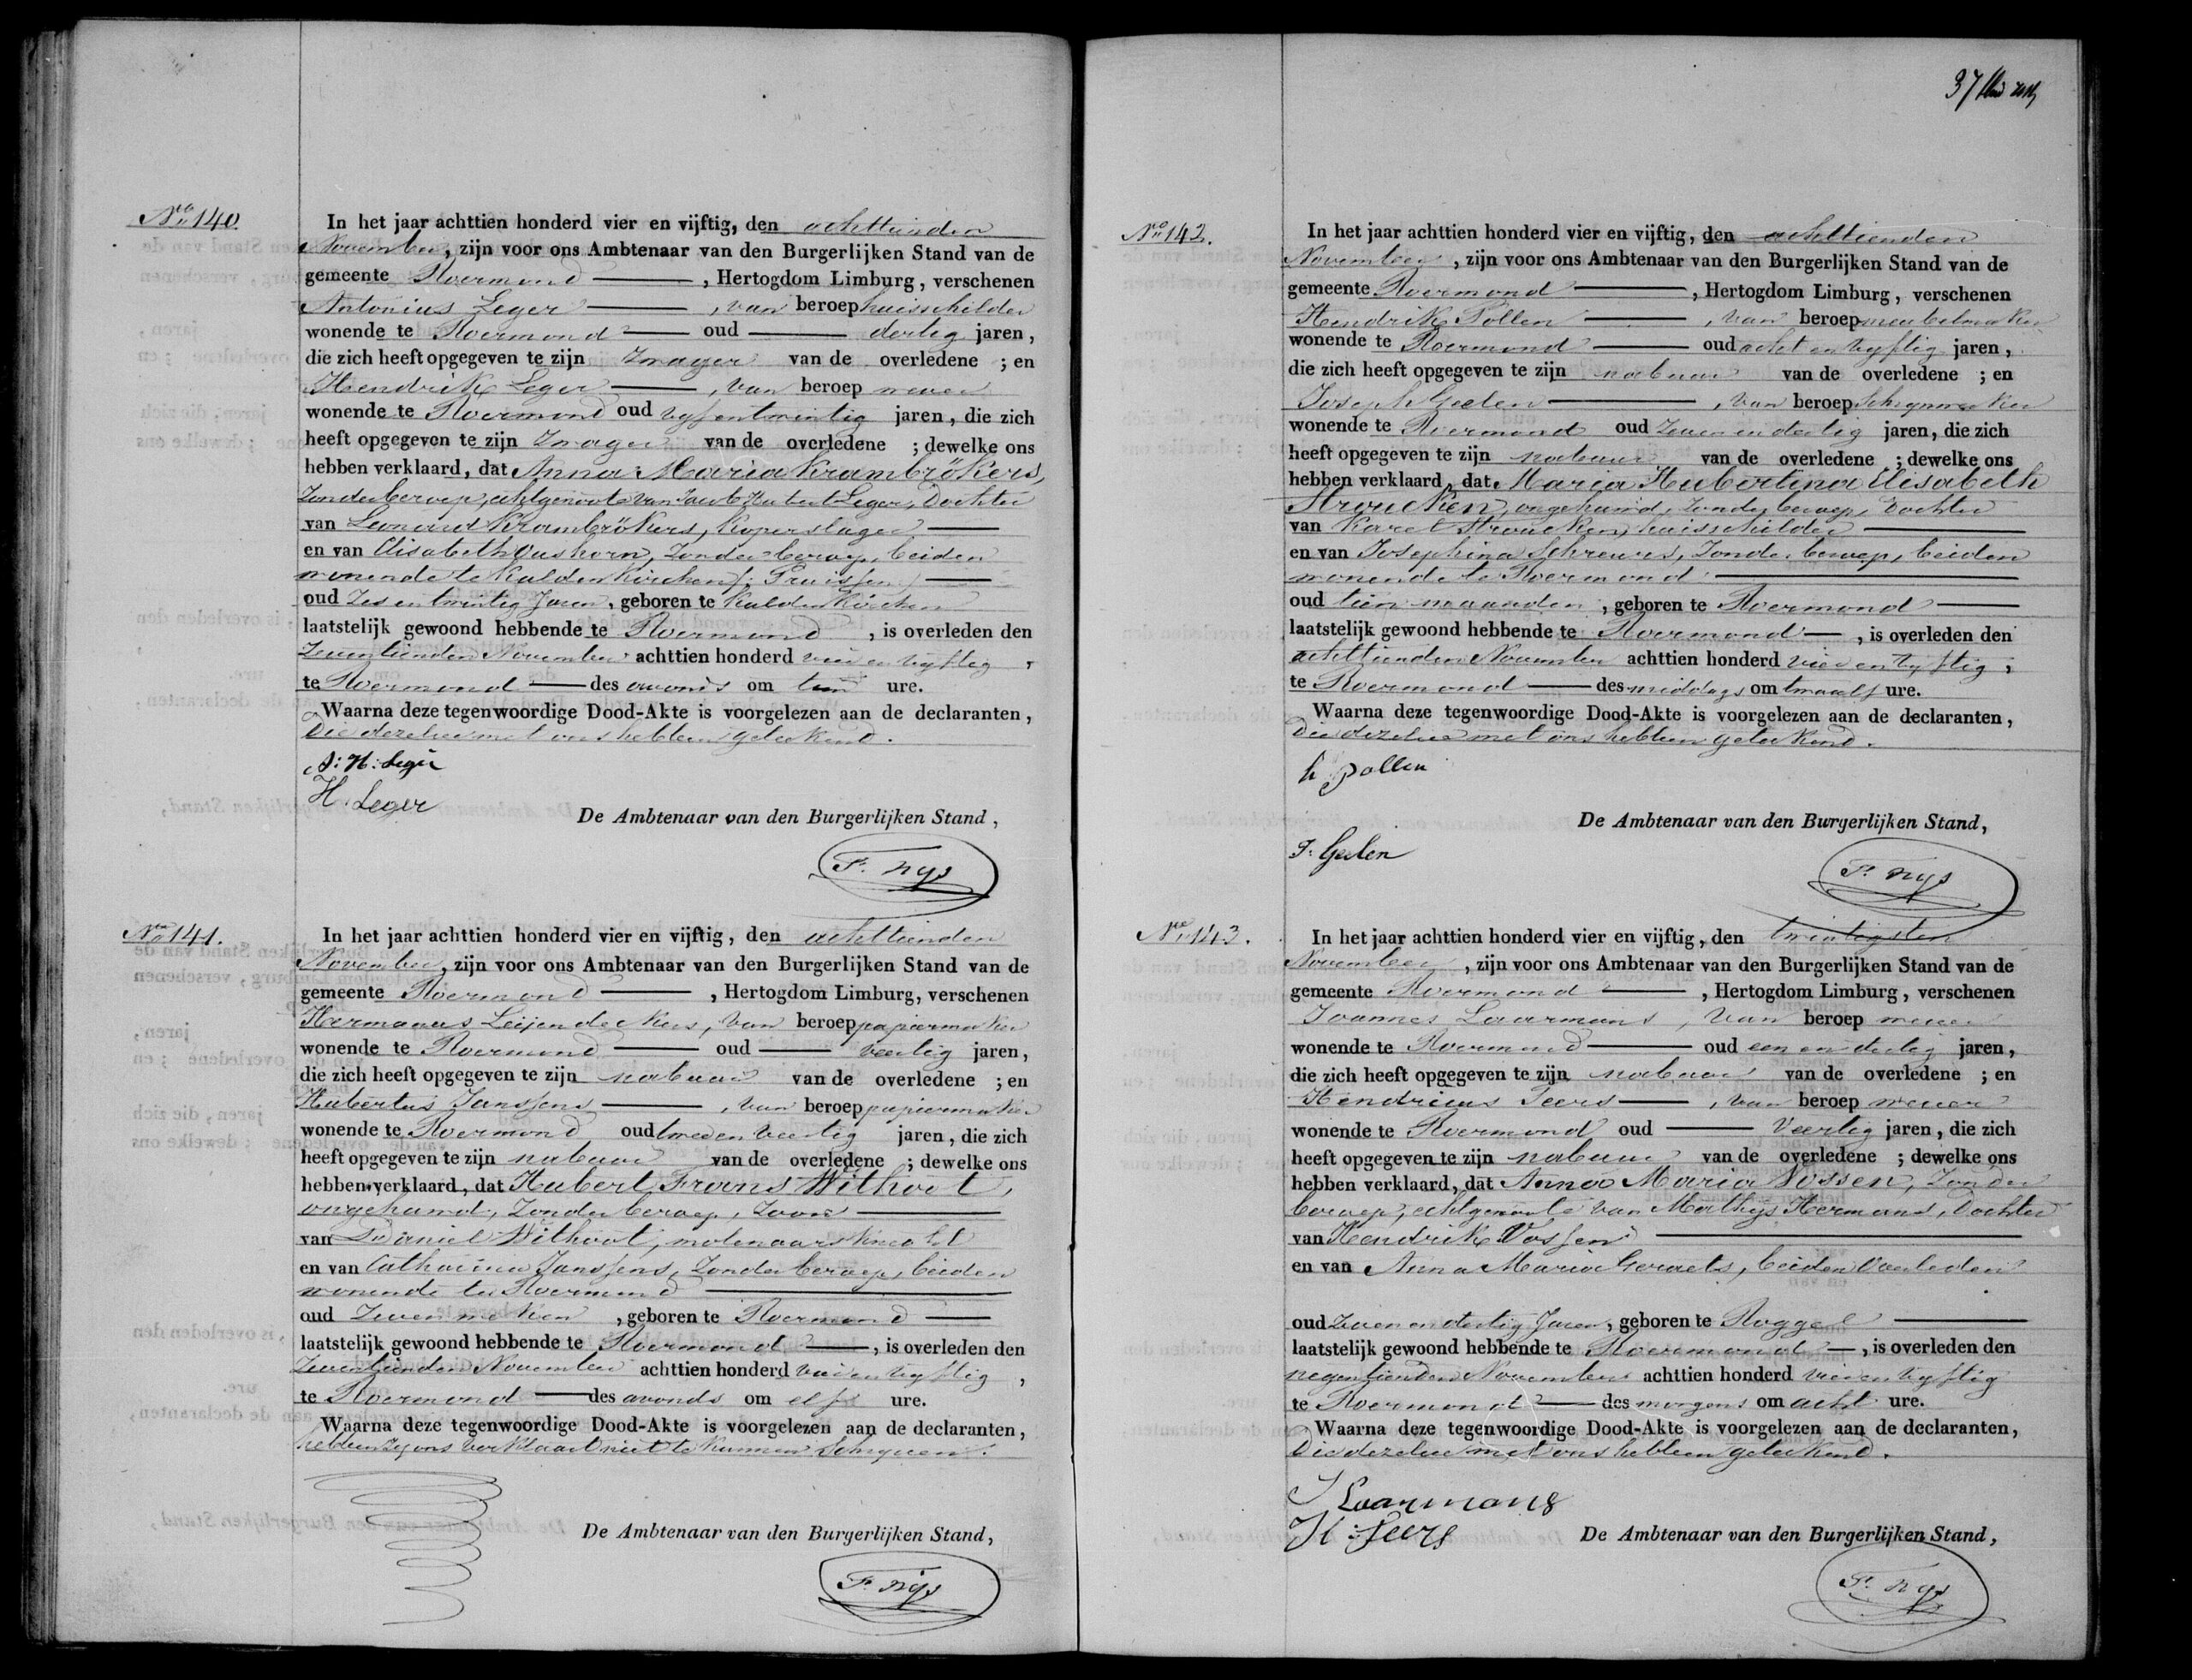 No 140
In het jaar achttien honderd vier en vijftig, den achttienden
November, zijn voor ons Ambtenaar van den Burgerlijken Stand van de
gemeente Roermond , Hertogdom Limburg, verschenen
Antonius Leger , van beroep huisschilder
wonende te Roermond oud dertig jaren,
die zich heeft opgegeven te zijn Zwager van de overledene ; en
Hendrik Leger , van beroep wever
wonende te Roermond oud vyfentwintig jaren, die zich
heeft opgegeven te zijn Zwager van de overledene ; dewelke ons
hebben verklaard, dat Anna Maria Krambrökers,
Zonder beroep, echtgenoote van Jacob Hubert Leger, Dochter
van Leonard Krambrökers, Koperslager
en van Elisabeth , Zonder beroep, beiden
wonende te Kaldenkirchen (: Pruissen )
oud Zes entwintig Jaren, geboren te Kaldenkirchen
laatstelijk gewoond hebbende te Roermond , is overleden den
Zeventienden November achttien honderd vier en vyftig ,
te Roermond des avonds om tien ure.
Waarna deze tegenwoordige Dood-Akte is voorgelezen aan de declaranten,
Die dezelve met ons hebben geteekend.
A: H: Leger
H. Leger
De Ambtenaar van den Burgerlijken Stand,
F. nys
No 141.
In het jaar achttien honderd vier en vijftig, den achttienden
November, zijn voor ons Ambtenaar van den Burgerlijken Stand van de
gemeente Roermond , Hertogdom Limburg, verschenen
Hermanus Leijendeckers, van beroep papiermaker
wonende te Roermond oud veertig jaren,
die zich heeft opgegeven te zijn nabuur van de overledene ; en
Hubertus Janssens , van beroep papiermaker
wonende te Roermond oud tweeen veertig jaren, die zich
heeft opgegeven te zijn nabuur van de overledene ; dewelke ons
hebben verklaard, dat Hubert Frans Withoot,
ongehuwd, Zonder beroep, Zoon
van Daniel Withoot, molenaarsknecht
en van Catharina Janssens, Zonder beroep, beiden
wonende te Roermond
oud Zeven weken , geboren te Roermond
laatstelijk gewoond hebbende te Roermond , is overleden den
Zeventienden November achttien honderd vier en vyftig ,
te Roermond des avonds om elf ure.
Waarna deze tegenwoordige Dood-Akte is voorgelezen aan de declaranten,
hebben zy ons verklaard niet te kunnen Schryven.
De Ambtenaar van den Burgerlijken Stand,
F. nys
37
No 142.
In het jaar achttien honderd vier en vijftig, den achttienden
November , zijn voor ons Ambtenaar van den Burgerlijken Stand van de
gemeente Roermond , Hertogdom Limburg, verschenen
Hendrik Pollen , van beroep meubelmaker
wonende te Roermond oud acht en vyftig jaren,
die zich heeft opgegeven te zijn nabuur van de overledene ; en
Joseph Geelen , van beroep Schrynwerker
wonende te Roermond oud Zeven en dertig jaren, die zich
heeft opgegeven te zijn nabuur van de overledene ; dewelke ons
hebben verklaard, dat Maria Hubertina Elisabeth
Stroucken, ongehuwd, Zonder beroep, Dochter
van Karel Stroucken, huisschilder
en van Josephina Schreurs, Zonder beroep, beiden
wonende te Roermond
oud tien maanden , geboren te Roermond
laatstelijk gewoond hebbende te Roermond , is overleden den
achttienden November achttien honderd vier en vyftig ,
te Roermond des middags om twaalf ure.
Waarna deze tegenwoordige Dood-Akte is voorgelezen aan de declaranten,
Die dezelve met ons hebben geteekend.
h pollen
De Ambtenaar van den Burgerlijken Stand,
J. Geelen
F. nys
No 143.
In het jaar achttien honderd vier en vijftig, den twintigsten
November , zijn voor ons Ambtenaar van den Burgerlijken Stand van de
gemeente Roermond , Hertogdom Limburg, verschenen
Joannes Laarmans , van beroep wever
wonende te Roermond oud een en dertig jaren,
die zich heeft opgegeven te zijn nabuur van de overledene ; en
Hendricus Peers , van beroep wever
wonende te Roermond oud Veertig jaren, die zich
heeft opgegeven te zijn nabuur van de overledene ; dewelke ons
hebben verklaard, dat Anna Maria Vossen, Zonder
beroep, echtgenoote van Mathijs Hermans, Dochter
van Hendrik Vossen
en van Anna Maria Geraets, beiden Overleden
oud Zeven en dertig Jaren, geboren te Roggel
laatstelijk gewoond hebbende te Roermond , is overleden den
negentienden November achttien honderd vier en vyftig
te Roermond des morgens om acht ure.
Waarna deze tegenwoordige Dood-Akte is voorgelezen aan de declaranten,
Die dezelve met ons hebben geteekend.
J Laarmans
H Peers
De Ambtenaar van den Burgerlijken Stand,
F. nys